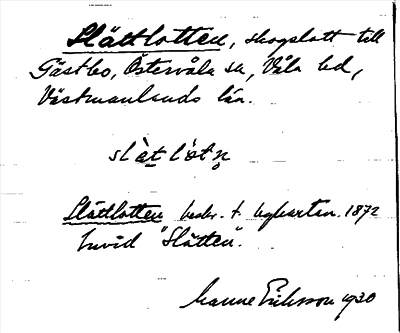 Slåttlotten, skogslott till
Gästbo, Östervåla sn, Våla hd,
Västmanlands län.
slåttlotten beskr. t. ughartan. 1872
Invid "Slåtten".
Manne Eriksson 1930